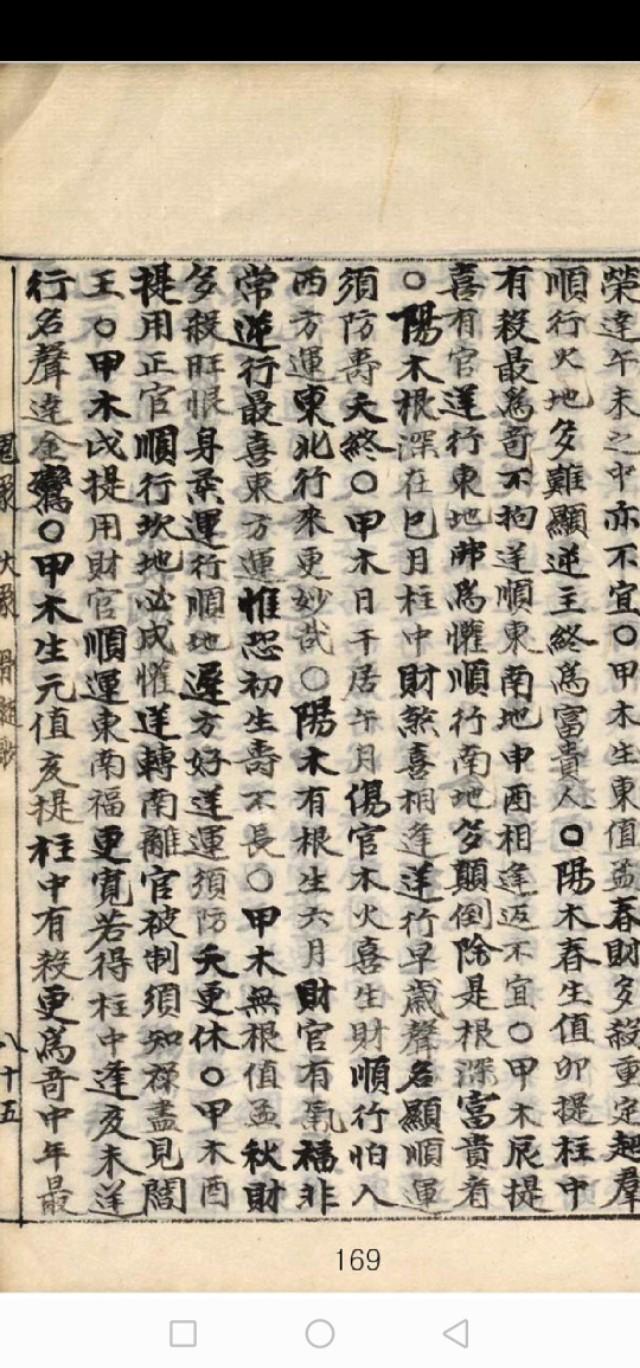 榮達午未之中亦不宜○甲木生東值孟春財多殺重定越羣
順行火地多難顯逆王終爲富貴人○陽木春生值卯提柱中
有殺最爲奇不拘逆順東南地申酉相逢返不宜○甲木辰提
喜有官逆行東地那爲懽順行南地多顛倒除是根深富貴者
○陽木根深在巳月柱中財煞喜相逢逆行早歲聲名顯順運
須防壽夭終○甲木日干居午月傷官木火喜生財順行怕入
西方運東北行來更妙哉○陽木有根生六月財官有氣福非
常逆行最喜東方運惟恐初生壽不長○甲木無根值孟秋財
多殺旺恨身柔運行順地遲方好逆運須防夭更休○甲木酉
提用正官順行坎地必成懽逆轉南離官被制須知祿盡見閻
王○甲木戌提用財官順運東南福更寬若得柱中逢亥未逆
行名聲達金鸞○甲木生元值亥提柱中有殺更爲奇中年最
骨髓歌
八十五
169